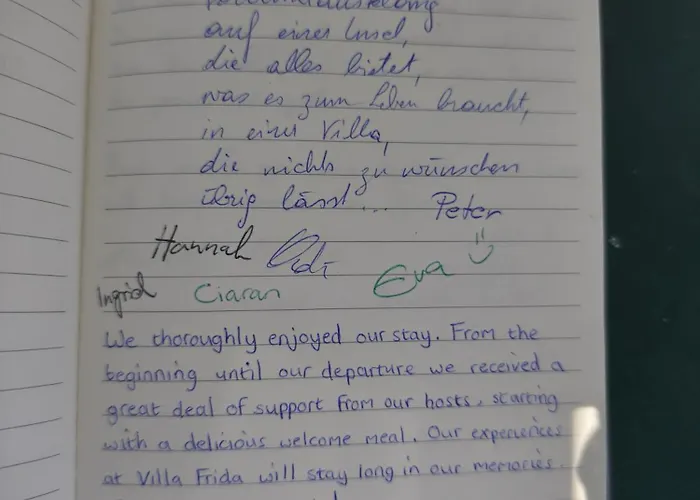 auf einer Insel,
die alles bietet,
was es zum Leben braucht,
in einer Villa,
die nichts zu wünschen
übrig lässt... Peter
Hannah
Eva
Ingrid Ciaran
We thoroughly enjoyed our stay. From the
beginning until our departure we received a
great deal of support from our hosts, starting
with a delicious welcome meal. Our experiences
at Villa Frida will stay long in our memories.